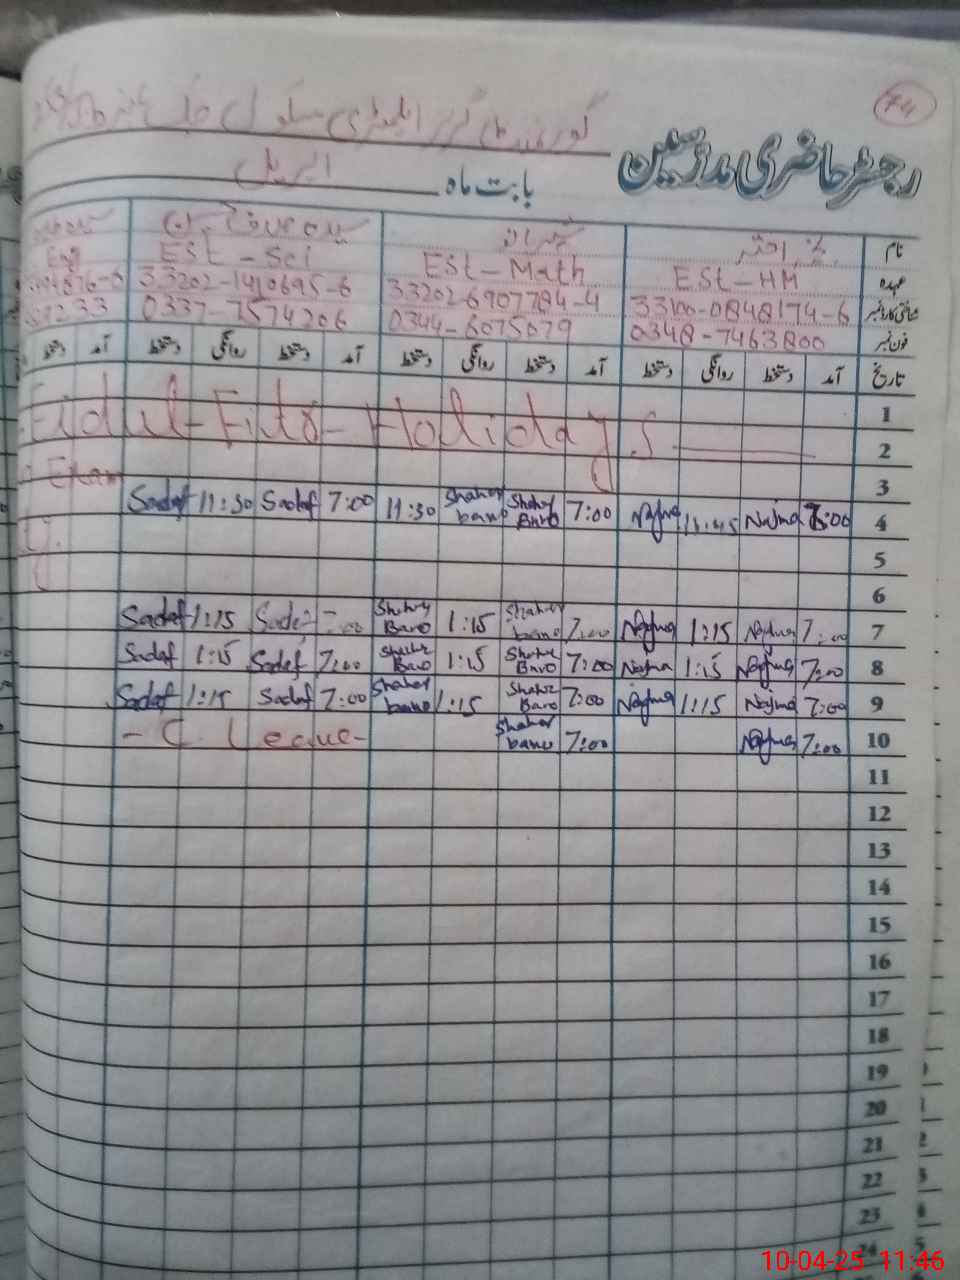 74
رجسٹر حاضری مدرسین
بابت ماہ اپریل
نام
عہدہ EST-HM EST-Math EST-Sci Eng
شناختی کارڈ نمبر 33100-0848174-6 33202-6907784-4 33202-1410695-6
فون نمبر 0348-7463800 0344-6075079 0337-7574206
تاریخ آمد دستخط روانگی دستخط آمد دستخط روانگی دستخط آمد دستخط روانگی دستخط آمد دستخط
1
Eid ul-Fitr-Holidays
2
3
Exam
Sadaf 11:30 Sadaf 7:00 11:30 Shaher bano Shaher Bano 7:00 Najma 11:45 Najma 8:00 4
5
6
Sadaf 1:15 Sadaf 7:00 Shaher Bano 1:15 Shaher bano 7:00 Najma 1:15 Najma 7:00 7
Sadaf 1:15 Sadaf 7:00 Shaher Bano 1:15 Shaher Bano 7:00 Najma 1:15 Najma 7:00 8
Sadaf 1:15 Sadaf 7:00 Shaher bano 1:15 Shaher Bano 7:00 Najma 1:15 Najma 7:00 9
- C. Leave - Shaher bano 7:00 Najma 7:00 10
11
12
13
14
15
16
17
18
19
20
21
22
23
24
10-04-25 11:46